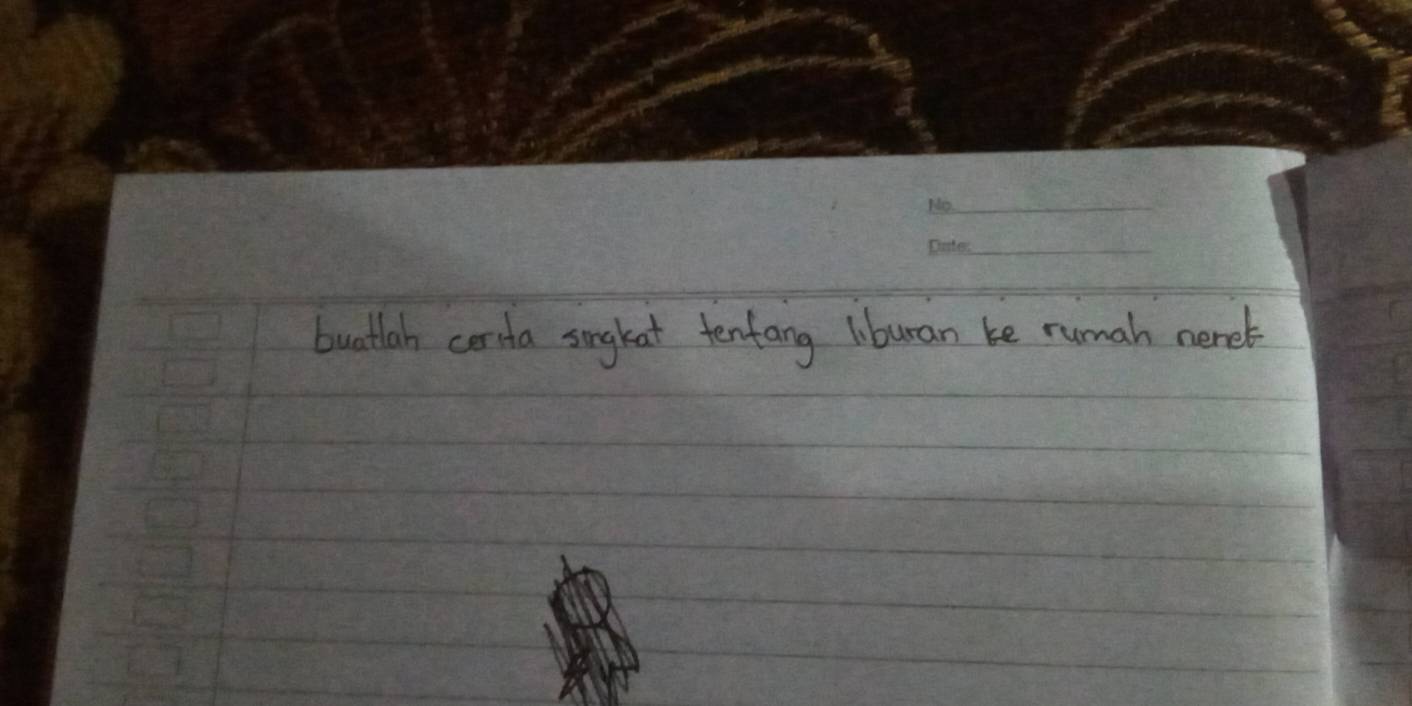 No.
Date:
buatlah cerita singkat tentang liburan ke rumah nenek